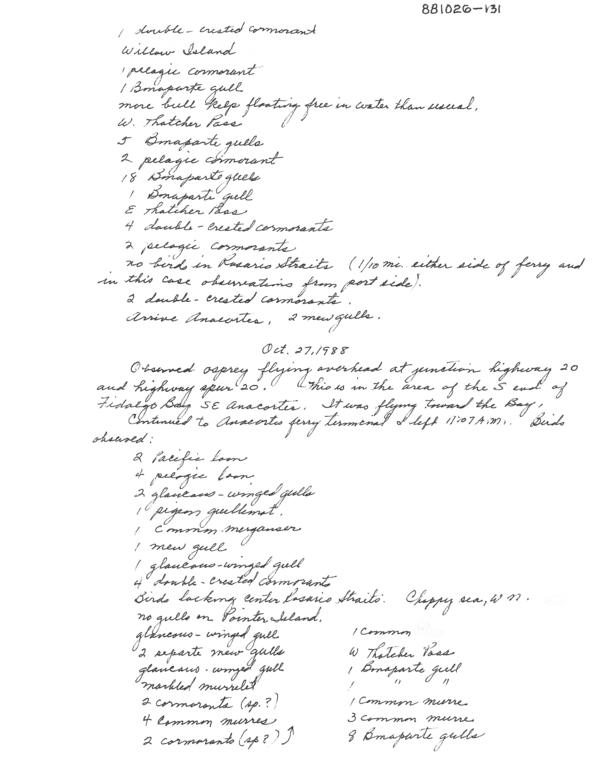 881026-131
1 double-crested cormorant
Willow Island
1 pelagic cormorant
1 Bonaparte gull
more bull kelp floating free in water than usual.
W. Thatcher Pass
5 Bonaparte gulls
2 pelagic cormorant
18 Bonaparte gulls
1 Bonaparte gull
E Thatcher Pass
4 double-crested cormorants
2 pelagic cormorants
no birds in Rosario Straits (1/10 mi. either side of ferry and
in this case observations from port side).
2 double-crested cormorants.
Arrive Anacortes, 2 mew gulls.
Oct. 27, 1988
Observed osprey flying overhead at junction highway 20
and highway spur 20. This is in the area of the S end of
Fidalgo Bay SE Anacortes. It was flying toward the Bay.
Continued to Anacortes ferry terminal & left 11:07 A.M. Birds
observed:
2 Pacific loon
4 pelagic loon
2 glaucous-winged gulls
1 pigeon guillemot.
1 Common merganser
1 mew gull
1 glaucous-winged gull
4 double-crested cormorants
Birds lacking center Rosario Straits. Choppy sea, W n.
no gulls on Pointer Island.
glaucous-winged gull
2 separate mew gulls
glaucous-winged gull
marbled murrelet
2 cormorants (sp.?)
4 Common murres
2 cormorants (sp?) ↑
1 Common
W Thatcher Pass
1 Bonaparte gull
1 " "
1 Common murre
3 common murre
8 Bonaparte gulls